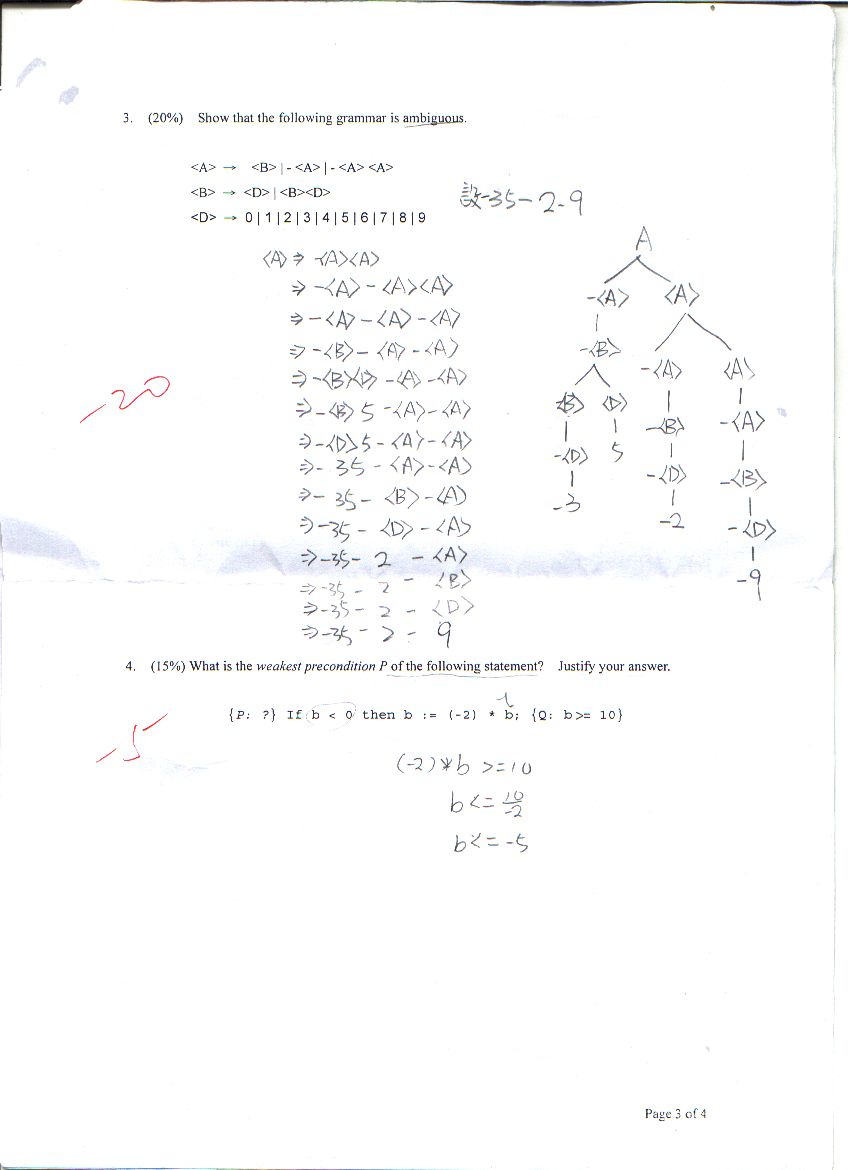 3. (20%) Show that the following grammar is ambiguous.
<A> → <B> | - <A> | - <A> <A>
<B> → <D> | <B><D>
<D> → 0 | 1 | 2 | 3 | 4 | 5 | 6 | 7 | 8 | 9
設-35-2-9
<A> ⇒ -<A><A>
⇒ -<A> - <A><A>
⇒ - <A> - <A> - <A>
⇒ - <B> - <A> - <A>
⇒ - <B><D> - <A> - <A>
⇒ - <B> 5 - <A> - <A>
⇒ - <D> 5 - <A> - <A>
⇒ - 35 - <A> - <A>
⇒ - 35 - <B> - <A>
⇒ - 35 - <D> - <A>
⇒ -35 - 2 - <A>
⇒ -35 - 2 - <B>
⇒ -35 - 2 - <D>
⇒ -35 - 2 - 9
A
-<A> <A>
-<B> -<A> <A>
<B> <D> -<B> -<A>
-<D> 5 -<D> -<B>
-3 -2 -<D>
-9
-20
4. (15%) What is the weakest precondition P of the following statement? Justify your answer.
{P: ?} If b < 0 then b := (-2) * b; {Q: b>= 10}
-5
(-2)*b >=10
b <= 10/-2
b <= -5
Page 3 of 4